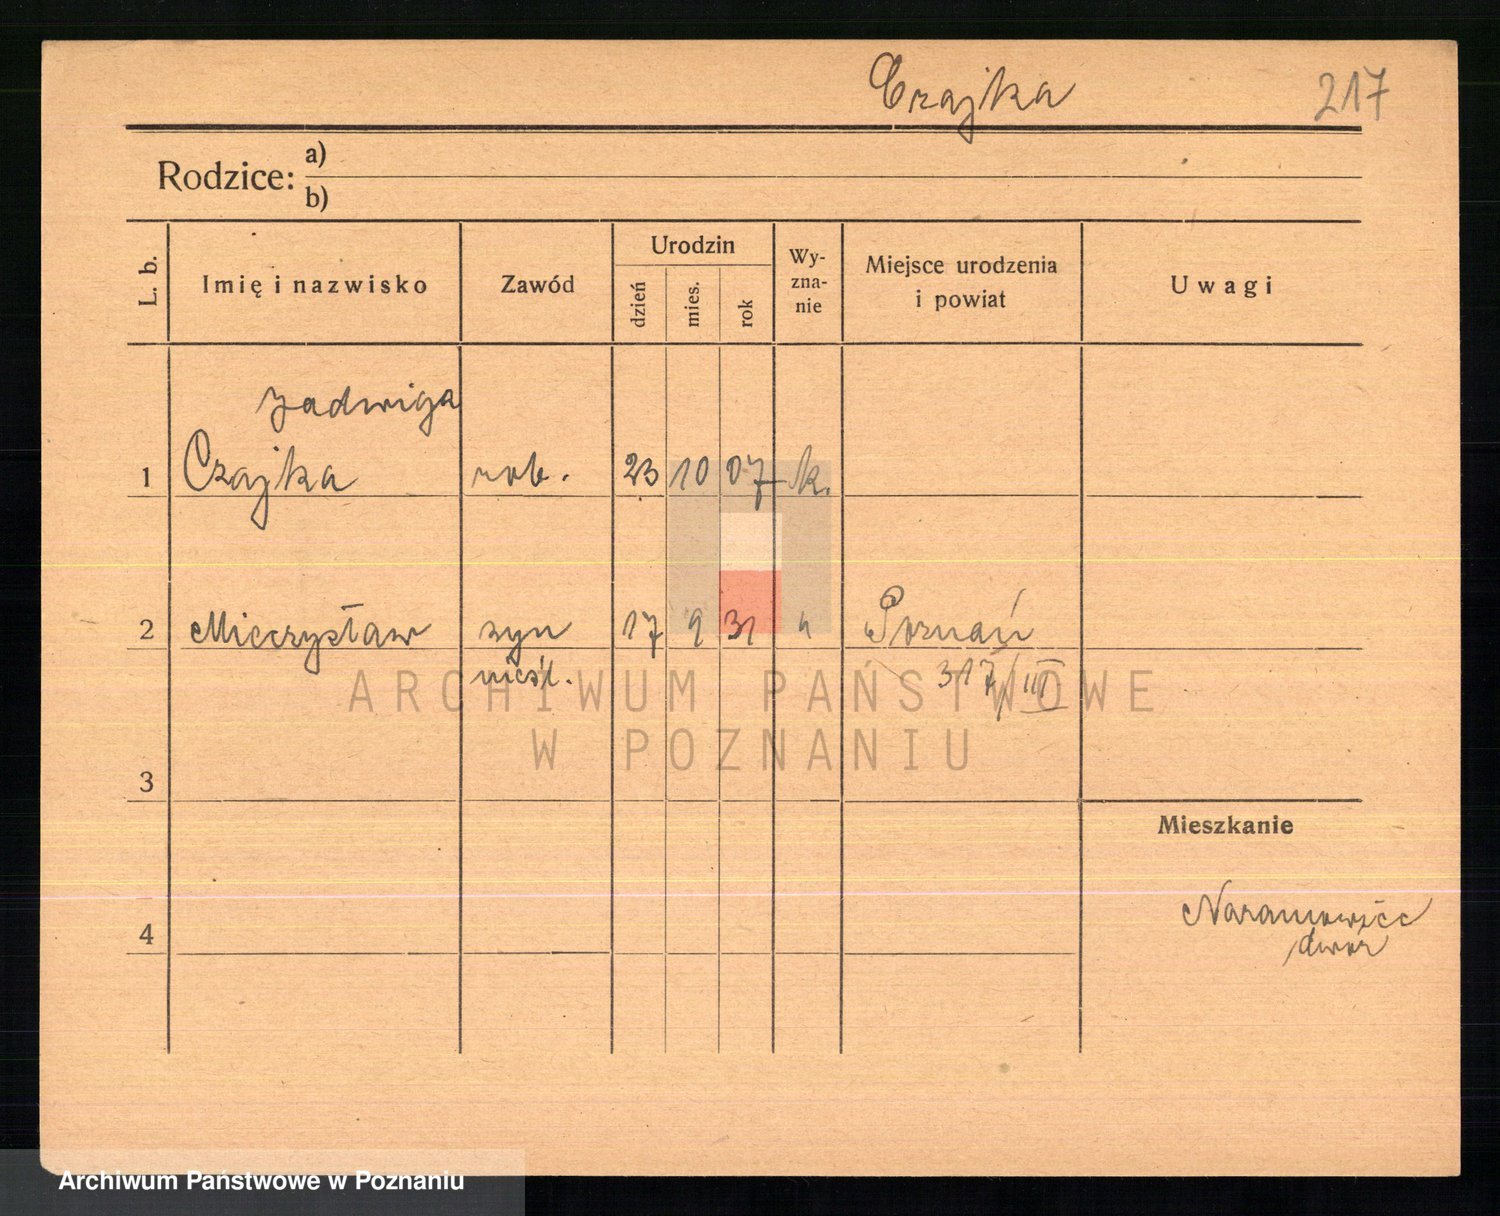 Czajka 217
Rodzice: a)
b)
L. b. Imię i nazwisko Zawód Urodzin dzień mies. rok Wy-zna-nie Miejsce urodzenia i powiat Uwagi
Jadwiga
1 Czajka rob. 23 10 07 k.
2 Mieczysław syn 17 9 31 " Poznań
nieśl. 317/III
3
Mieszkanie
4 Naramowice
dwór
ARCHIWUM PAŃSTWOWE
W POZNANIU
Archiwum Państwowe w Poznaniu